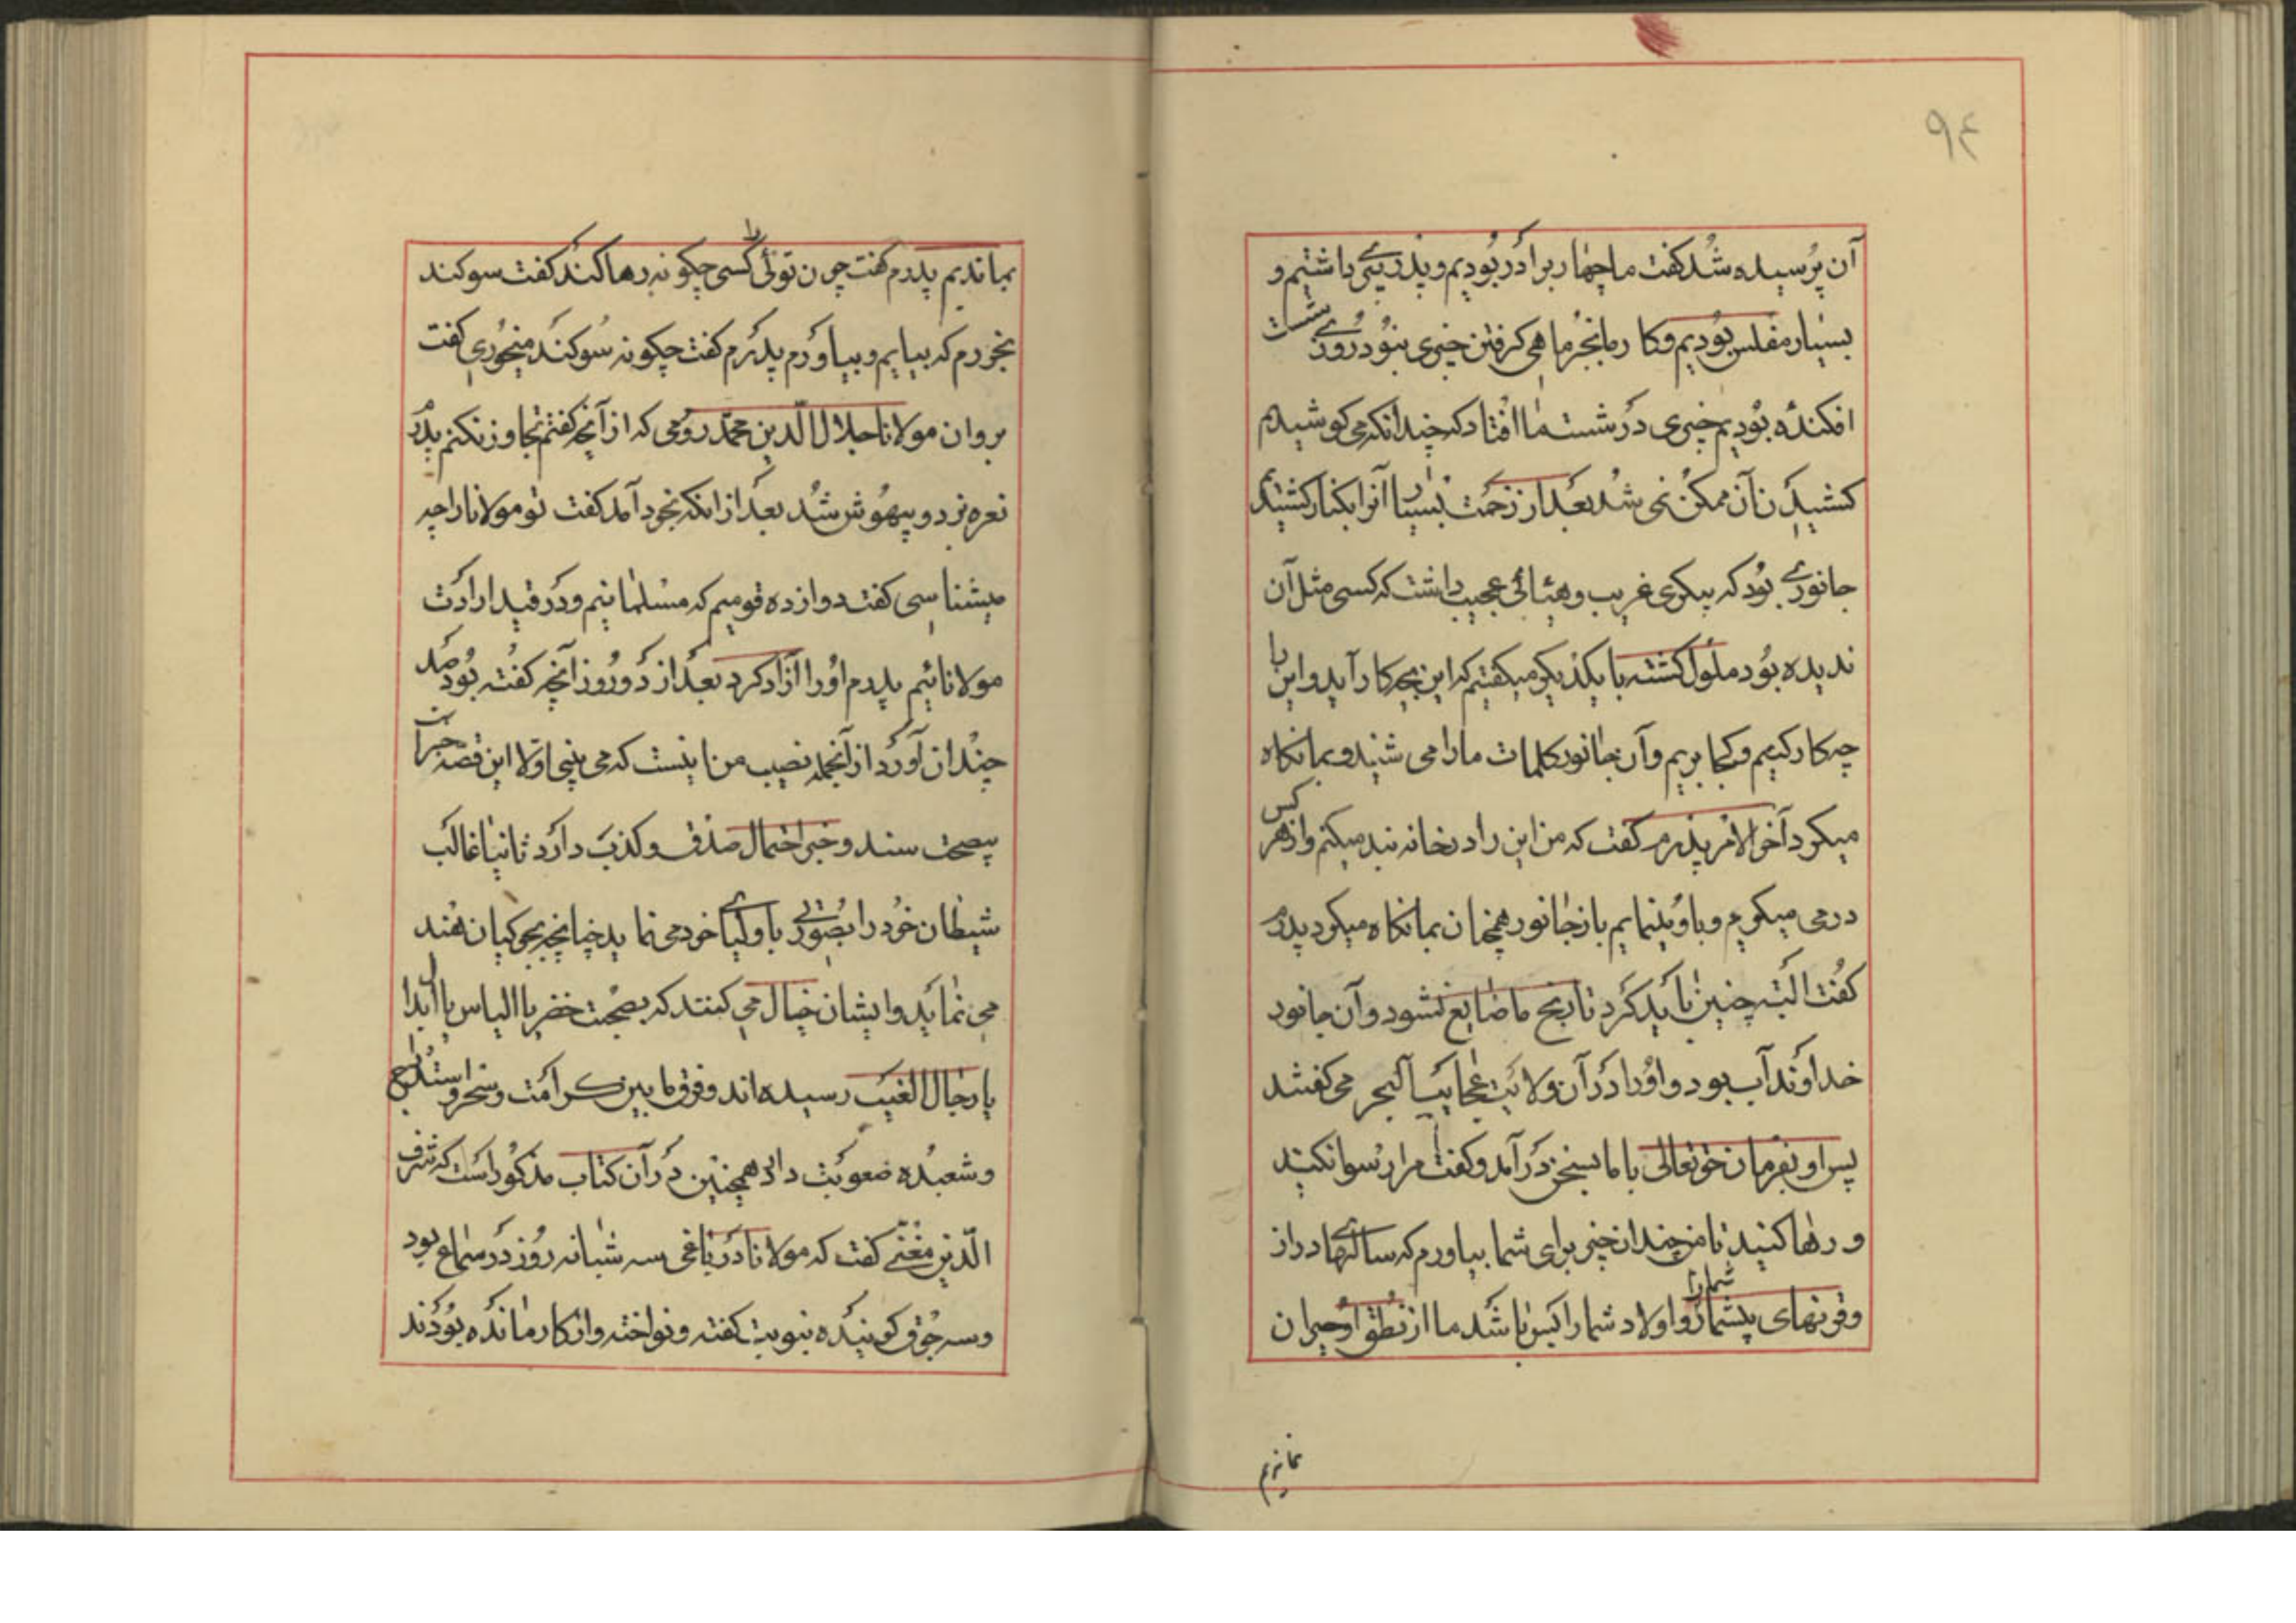 ۹۴
آن پرسیده شد کفت ما چهار برادر بودیم و پدر پیری داشتیم و
بسیار مفلس بودیم و کار ما بجز ماهی کرفتن چیزی نبود روزی شست
افکنده بودیم چیزی در شست ما افتاد که چندانکه می کوشیدیم
کشیدن آن ممکن نمی شد بعد از زحمت بسیار آنرا بکنار کشیدیم
جانوری بود که پیکری غریب و هیأتی عجیب داشت که کسی مثل آن
ندیده بود ملول کشته با یکدیکر میکفتیم که این بچه کار آید و این با
چه کار کنیم و کجا بریم و آن جانور کلمات ما را می شنید و بما نکاه
میکرد آخر الامر پدرم کفت که من این را در خانه بند میکنم و از هر کس
درمی میکیرم و باو بنمایم باز جانور همچنان بما نکاه میکرد پدرم
کفت البته چنین باید کرد تا رنج ما ضایع نشود و آن جانور
خداوند آب بود و او را در آن ولایت عجایب البحر می کفتند
پس او بفرمان حق تعالی با ما بسخن درآمد و کفت مرا رسوا نکنید
و رها کنید تا من چندان چیز برای شما بیاورم که سالهای دراز
و قرنهای بیشمار شما را و اولاد شما را بس باشد ما از نطق او حیران
بماندیم
بماندیم پدرم کفت چون توئی را کسی چکونه رها کند کفت سوکند
بخورم که بیایم و بیاورم پدرم کفت چکونه سوکند میخوری کفت
بروان مولانا جلال الدین محمد رومی که از آنچه کفتم تجاوز نکنم پدرم
نعره بزد و بیهوش شد بعد از انکه بخود آمد کفت تو مولانا را چه
میشناسی کفت دوازده قومیم که مسلمانیم و در قید ارادت
مولانائیم پدرم او را آزاد کرد بعد از دو روز آنچه کفته بود صد
چندان آورد از آنجمله نصیب من اینست که می بینی اولا این قصه خبر است
بصحت سند و خبر احتمال صدق و کذب دارد ثانیا غالب
شیطان خود را بصورتی باولیای خود می نماید چنانچه بجوکیان هند
می نماید و ایشان خیال می کنند که بصحبت خضر یا الیاس یا ابدال
یا رجال الغیب رسیده اند و فرق ما بین کرامت و سحر و استدراج
و شعبده صعوبت دارد همچنین در آن کتاب مذکور است که شرف
الدین مغنی کفت که مولانا در باغی سه شبانه روز در سماع بود
و سه جوق کوینده بنوبت کفته و نواخته و از کار مانده بودند